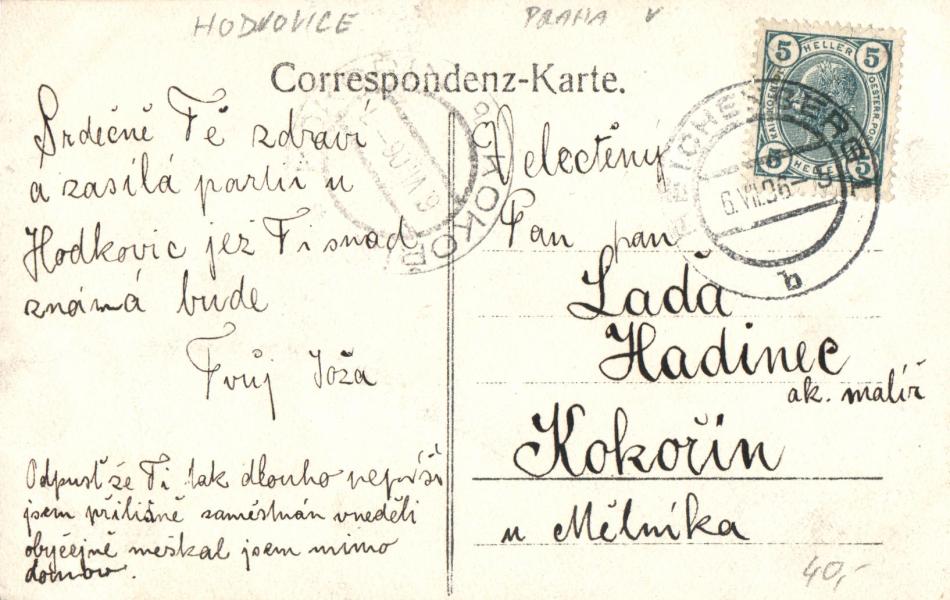 HODVOVICE
PRAHA v
Correspondenz-Karte.
Srdečně Tě zdraví
a zasílá partii u
Hodkovic jež Ti snad
známá bude
Tvůj Jóža
Odpusť že Ti tak dlouho nepíši
jsem přílišně zaměstnán vneděli
obyčejně meškal jsem mimo
domov.
Velectěný
Pan pan
Lada
Hadinec
ak. malíř
Kokořín
u Mělníka
40,-
5 HELLER 5
5 HELLER 5
REICHENBERG
6.VII.06
b
KOKOŘ
6 VII 06